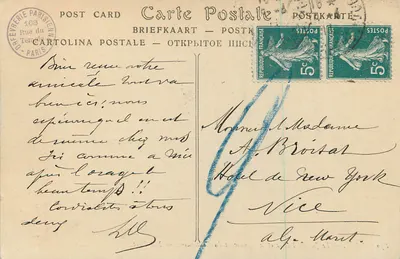 POST CARD Carte Postale
BRIEFKAART - POSTK
CARTOLINA POSTALE - ОТКРЫТОЕ ПИС
PARIS
REPUBLIQUE FRANCAISE POSTES 5c
REPUBLIQUE FRANCAISE POSTES 5c
Bien reçu votre
amicale
bien ici, nous
espérons qu'il en est
de même chez vous
Ici comme à Nice
après l'orage le
beau temps !!
Cordialités à tous
deux
Monsieur Madame
A. Broisat
Hotel de New York
Nice
Alp. Marit.